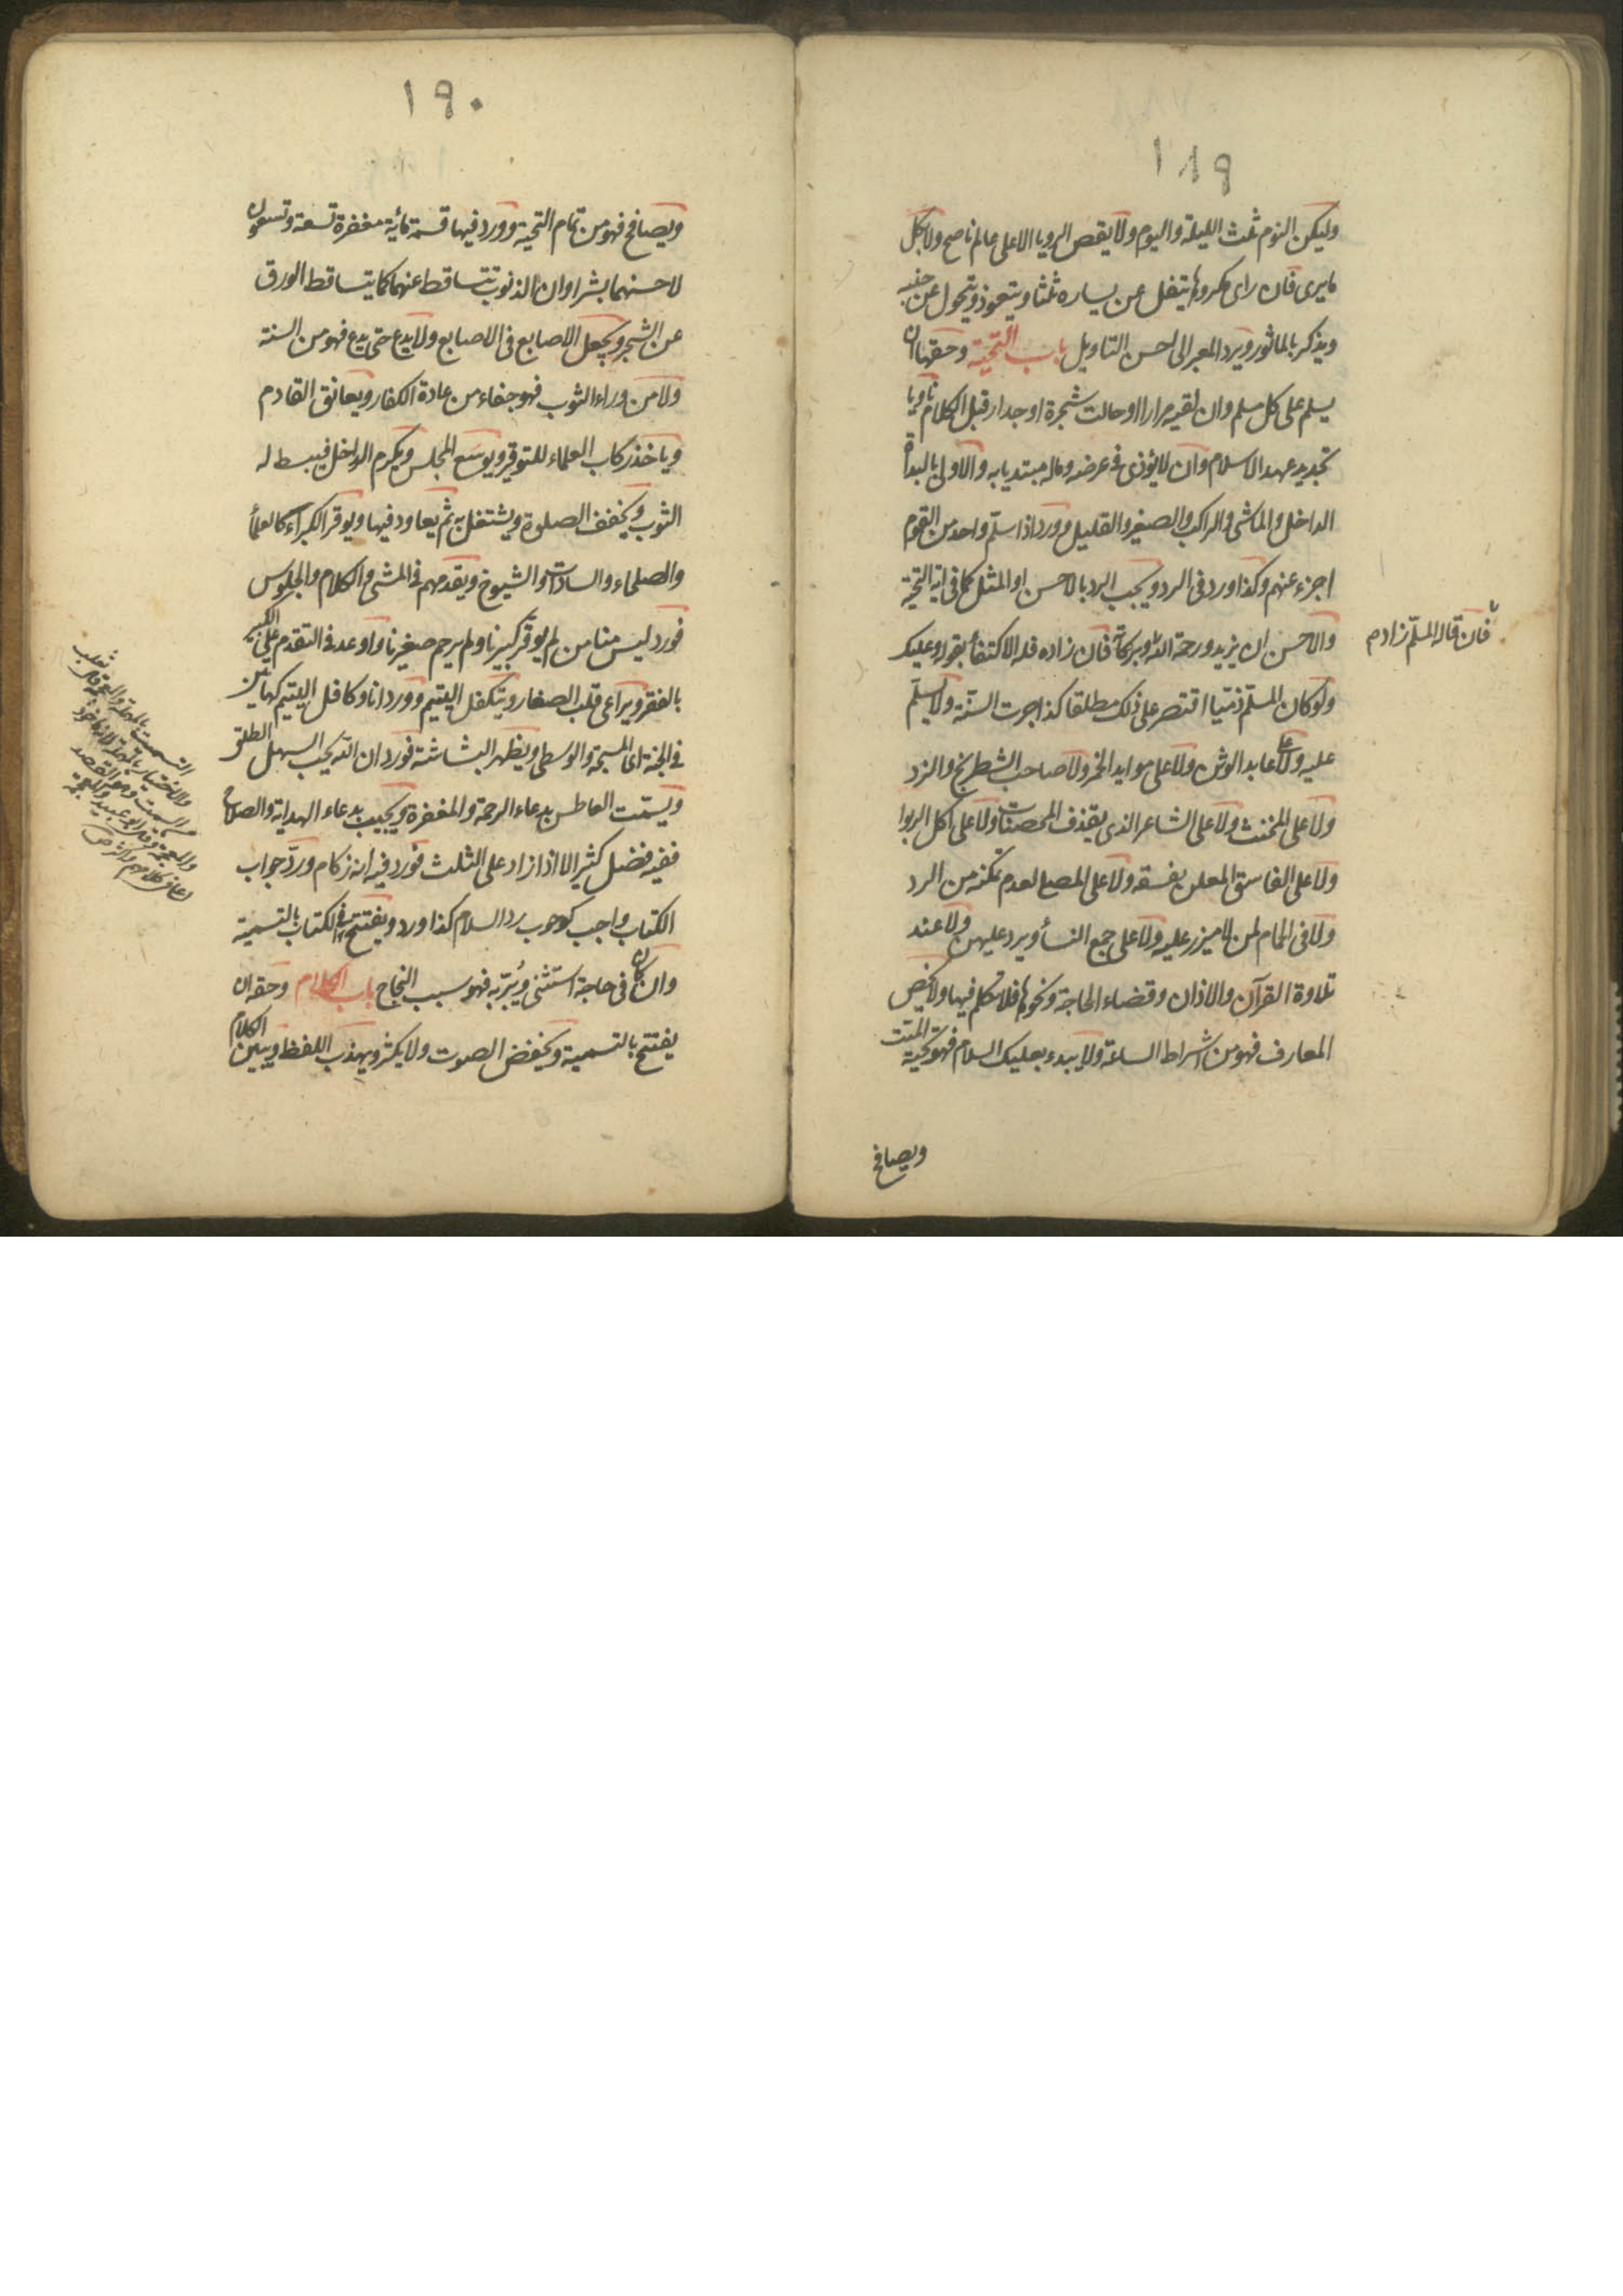 ١٨٩
وليكن النوم ثلث الليلة واليوم ولا يقص الرويا الا على عالم ناصح ولا بكل
ما يرى فان راى مكروها يتفل عن يساره ثلثا ويتعوذ ويتحول عن جنبه
ويذكر بالماثور ويرد المعبر الى احسن التاويل باب التحية وحقها ان
يسلم على كل مسلم وان لقيه مرارا او حالت شجرة او جدار قبل الكلام ناويا
تجديد عهد الاسلام وان لا يؤذى فى عرضه وماله مبتديا به والاولى بالبداة
الداخل والماشى والراكب والصغير والقليل وورد اذا سلم واحد من القوم
اجزء عنهم وكذا ورد فى الرد ويجب الرد بالاحسن او المثل كما فى اية التحية
والاحسن ان يزيد ورحمة الله وبركاته فان زاده فله الاكتفأ بقوله وعليك
فان قاله المسلّم زادم
ولو كان المسلّم ذميّا اقتصر على ذلك مطلقا كذا جرت السنّة ولا يسلّم
عليه ولا على عابد الوثن ولا على موايد الخمر ولا صاحب الشطرنج والنرد
ولا على المخنث ولا على الشاعر الذى يقذف المحصنات ولا على اكل الربوا
ولا على الفاسق المعلن بفسقه ولا على المصلى لعدم تمكنه من الرد
ولا فى الحمام لمن لا ميزر عليه ولا على جمع النسأ ويرد عليهن ولا عند
تلاوة القرآن والاذان وقضاء الحاجة ونحوها فلا تكلم فيها ولا يخص
المعارف فهو من اشراط الساعة ولا يبدء بعليك السلام فهو تحية الميّت
ويصافح
١٩٠
ويصافح فهو من تمام التحية وورد فيها قسمة مأية مغفرة تسعة وتسعون
لاحسنهما بشرا وان الذنوب تتساقط عنهما كما يتساقط الورق
عن الشجر ويجعل الاصابع فى الاصابع ولا يدع حتى يدع فهو من السنة
ولا من وراء الثوب فهو جفاء من عادة الكفار ويعانق القادم
وياخذ ركاب العلماء للتوقير ويوسع المجلس ويكرم الداخل فيبسط له
الثوب ويخفف الصلوة ويشتغل به ثم يعاود فيها ويوقر الكبرآء كالعلمأ
والصلحاء والسادات والشيوخ ويقدمهم فى المشى والكلام والجلوس
فورد ليس منا من لم يوقر كبيرنا ولم يرحم صغيرنا واوعد فى التقدم على الكبير
بالفقر ويراعى قلب الصغار ويتكفل اليتيم وورد انا وكافل اليتيم كهاتين
فى الجنة اى المسبحة والوسطى ويظهر البشاشة فورد ان الله يحب السهل الطلق
ويسمّت العاطس بدعاء الرحمة والمغفرة ويجيب بدعاء الهداية والصلاح
ففيه فضل كثير الا اذا زاد على الثلث فورد فيه انه زكام وردّ جواب
الكتاب واجب كوجوب رد السلام كذا ورد ويفتتح فى الكتاب بالتسمية
وان كان فى حاجة استثنى ويُتَرّبه فهو سبب النجاح باب الكلام وحقه ان
يفتتح بالتسمية ويخفض الصوت ولا يكثر ويهذب اللفظ ويبين الكلام